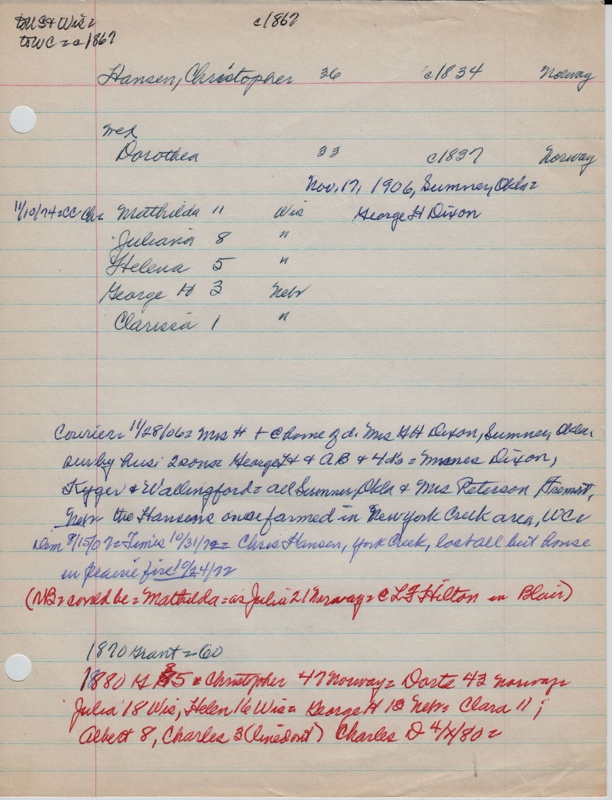 to US & Wis = c1867
to WC = c1867
Hansen, Christopher 36 c1834 Norway
wed
Dorothea 33 c1837 Norway
Nov, 17, 1906, Sumner, Okla=
11/10/74=CC Chr Matthilda 11 Wis George H Dixon
Juliana 8 "
Helena 5 "
George H 3 Nebr
Clarissa 1 "
Courier= 11/28/06= Mrs H + @ home of d. Mrs GH Dixon, Sumner, Okla.
surby husb 2 sons= George H & AB & 4 ds= Mmes Dixon,
Kyger & Wallingford= all Sumner, Okla & Mrs Peterson, Fremont,
Nebr the Hansens once farmed in New York Creek area, WC=
Dem 8/15/07= Times 10/31/72= Chris Hansen, York Creek, lost all but house
in prairie fire 10/24/72
(NB= could be= Mathilda= as Julia 21 Norway= @ LF Hilton in Blair)
1870 Grant= 60
1880 G 85 = Christopher 47 Norway= Dorte 42 Norway=
Julia 18 Wis, Helen 16 Wis= George H 13 Neb= Clara 11;
Albert 8, Charles 3 (lined out) Charles D 4/4/80=